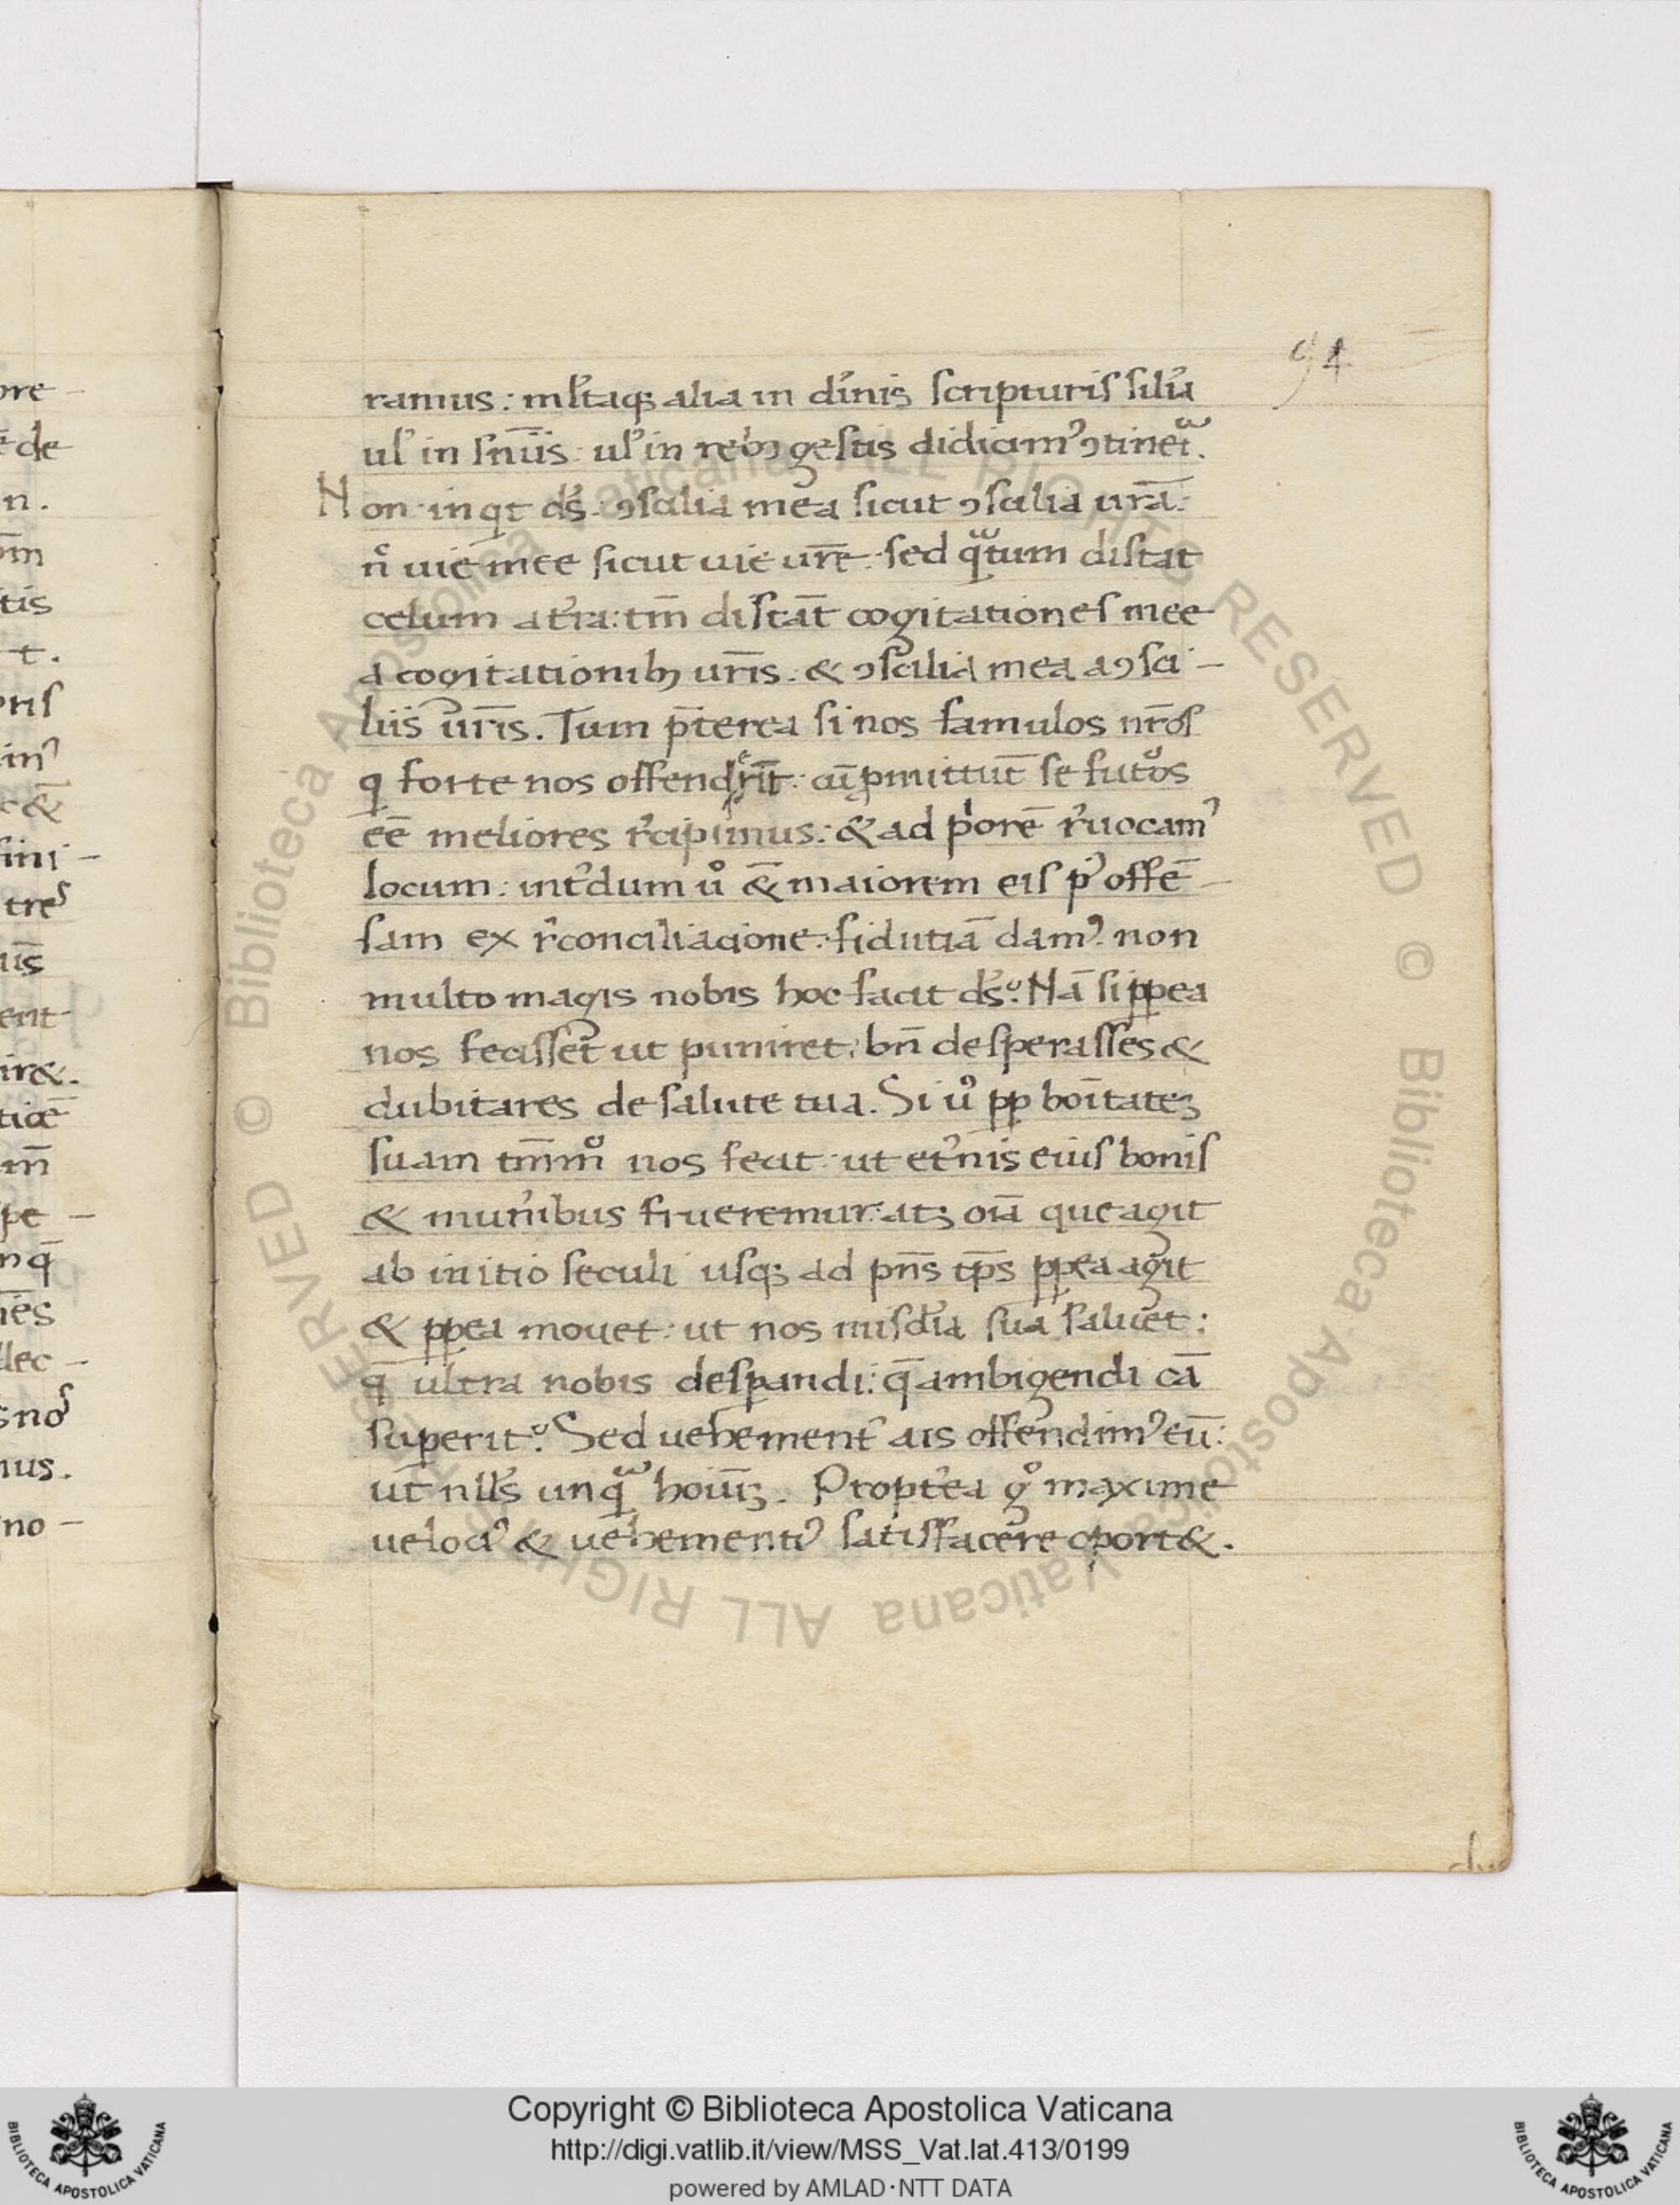 94
ramus: ml̉taqꝫ alia in dı̉nis scripturis silı̉a
ul̉ in sn̄iis: ul̉ in rebꝫ gestis didicimꝰ ꝯtinet᷑.
Non inqt ds̉: ꝯsilia mea sicut ꝯsilia ur̄a:
n̉ uie mee sicut uie ur̄e: sed qᷓtum distat
celum a tr̉ra: tm̄ distāt cogitationes mee
a cogitationibꝫ ur̄is. & ꝯsilia mea a ꝯsi-
liis ur̄is. Tum p̄terea si nos famulos nr̄os
q forte nos offendert̄: cū ꝓmittūt se futuͦs
eē meliores r̉cipimus: & ad pͥorē r̉uocamꝰ
locum: int̉dum uͦ &̄ maiorem eis pꝰ offē-
sam ex r̉conciliacione: fidutiā damꝰ. non
multo magis nobis hoc facit ds̉? Nā si ꝓpea
nos fecisset ut puniret: bn̄ desperasses &
dubitares de salute tua. Si uͦ ꝓp boītateꝫ
suam tm̄mͦ nos fecit: ut et̉nis eius bonis
& mun̉ibus frueremur: atꝫ oīa que agit
ab initio seculi usqꝫ ad pn̄s tp̄s ꝓpea agit
& ꝓpea mouet: ut nos misd̉ia sua saluet:
q̄ ultra nobis desꝑandi: q̄ ambigendi cā
superit? Sed uehement̉ ais offendimꝰ eū:
ut nll̉s unqᷓ hoiūꝫ. Propt̉ea gͦ maxime
uelociꝰ & uehementiꝰ satisfacere oport&.
ore-
de
n.
tis
t.
tis
inꝰ
&̄
sini-
tres
uis
ent
ir&.
m̄
pe-
nq̄
lec-
nus.
no-
© Biblioteca Apostolica Vaticana ALL RIGHTS RESERVED © Biblioteca Apostolica Vaticana ALL RIGHTS RESERVED
Copyright © Biblioteca Apostolica Vaticana
http://digi.vatlib.it/view/MSS_Vat.lat.413/0199
powered by AMLAD·NTT DATA
BIBLIOTECA APOSTOLICA VATICANA
BIBLIOTECA APOSTOLICA VATICANA